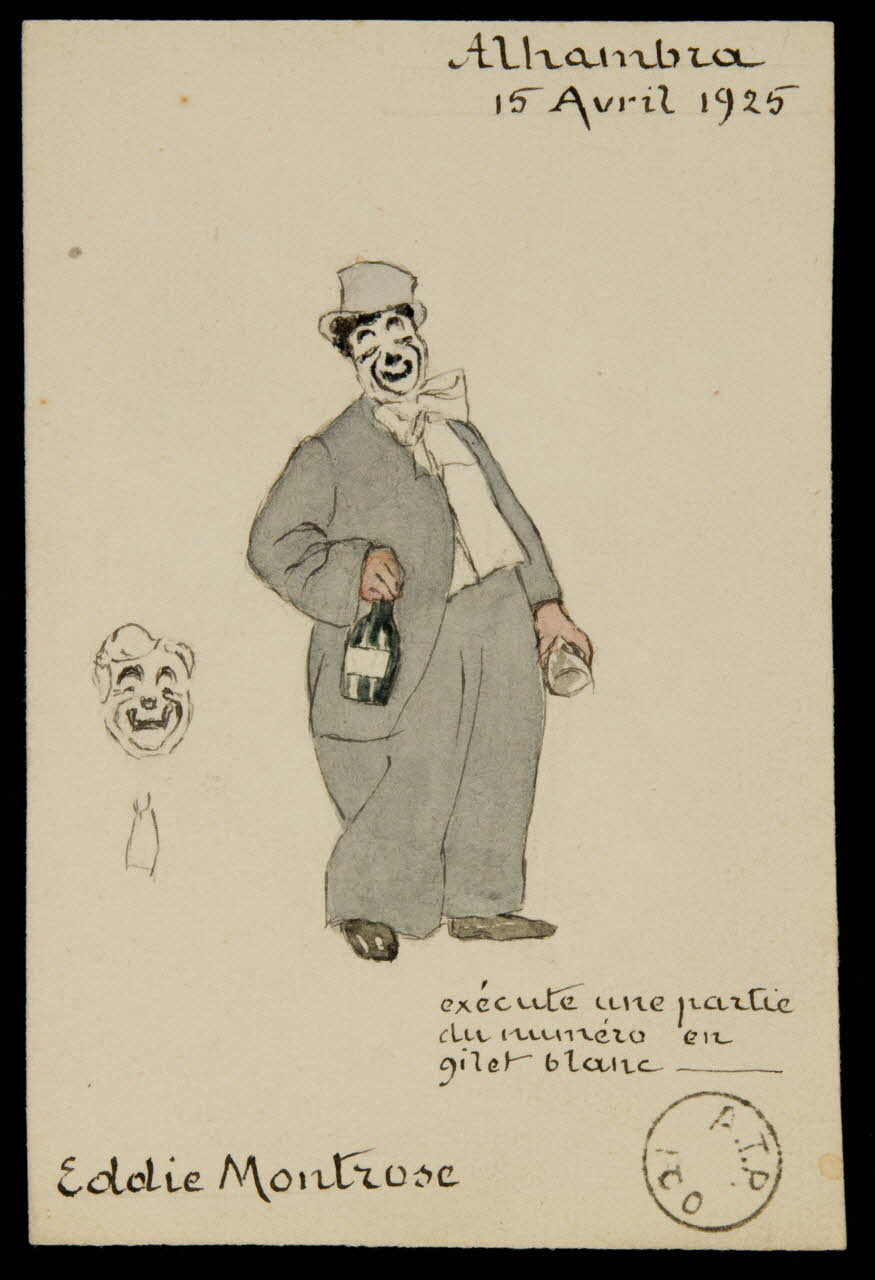 Alhambra
15 Avril 1925
exécute une partie
du numéro en
gilet blanc
Eddie Montrose
A.T.P.